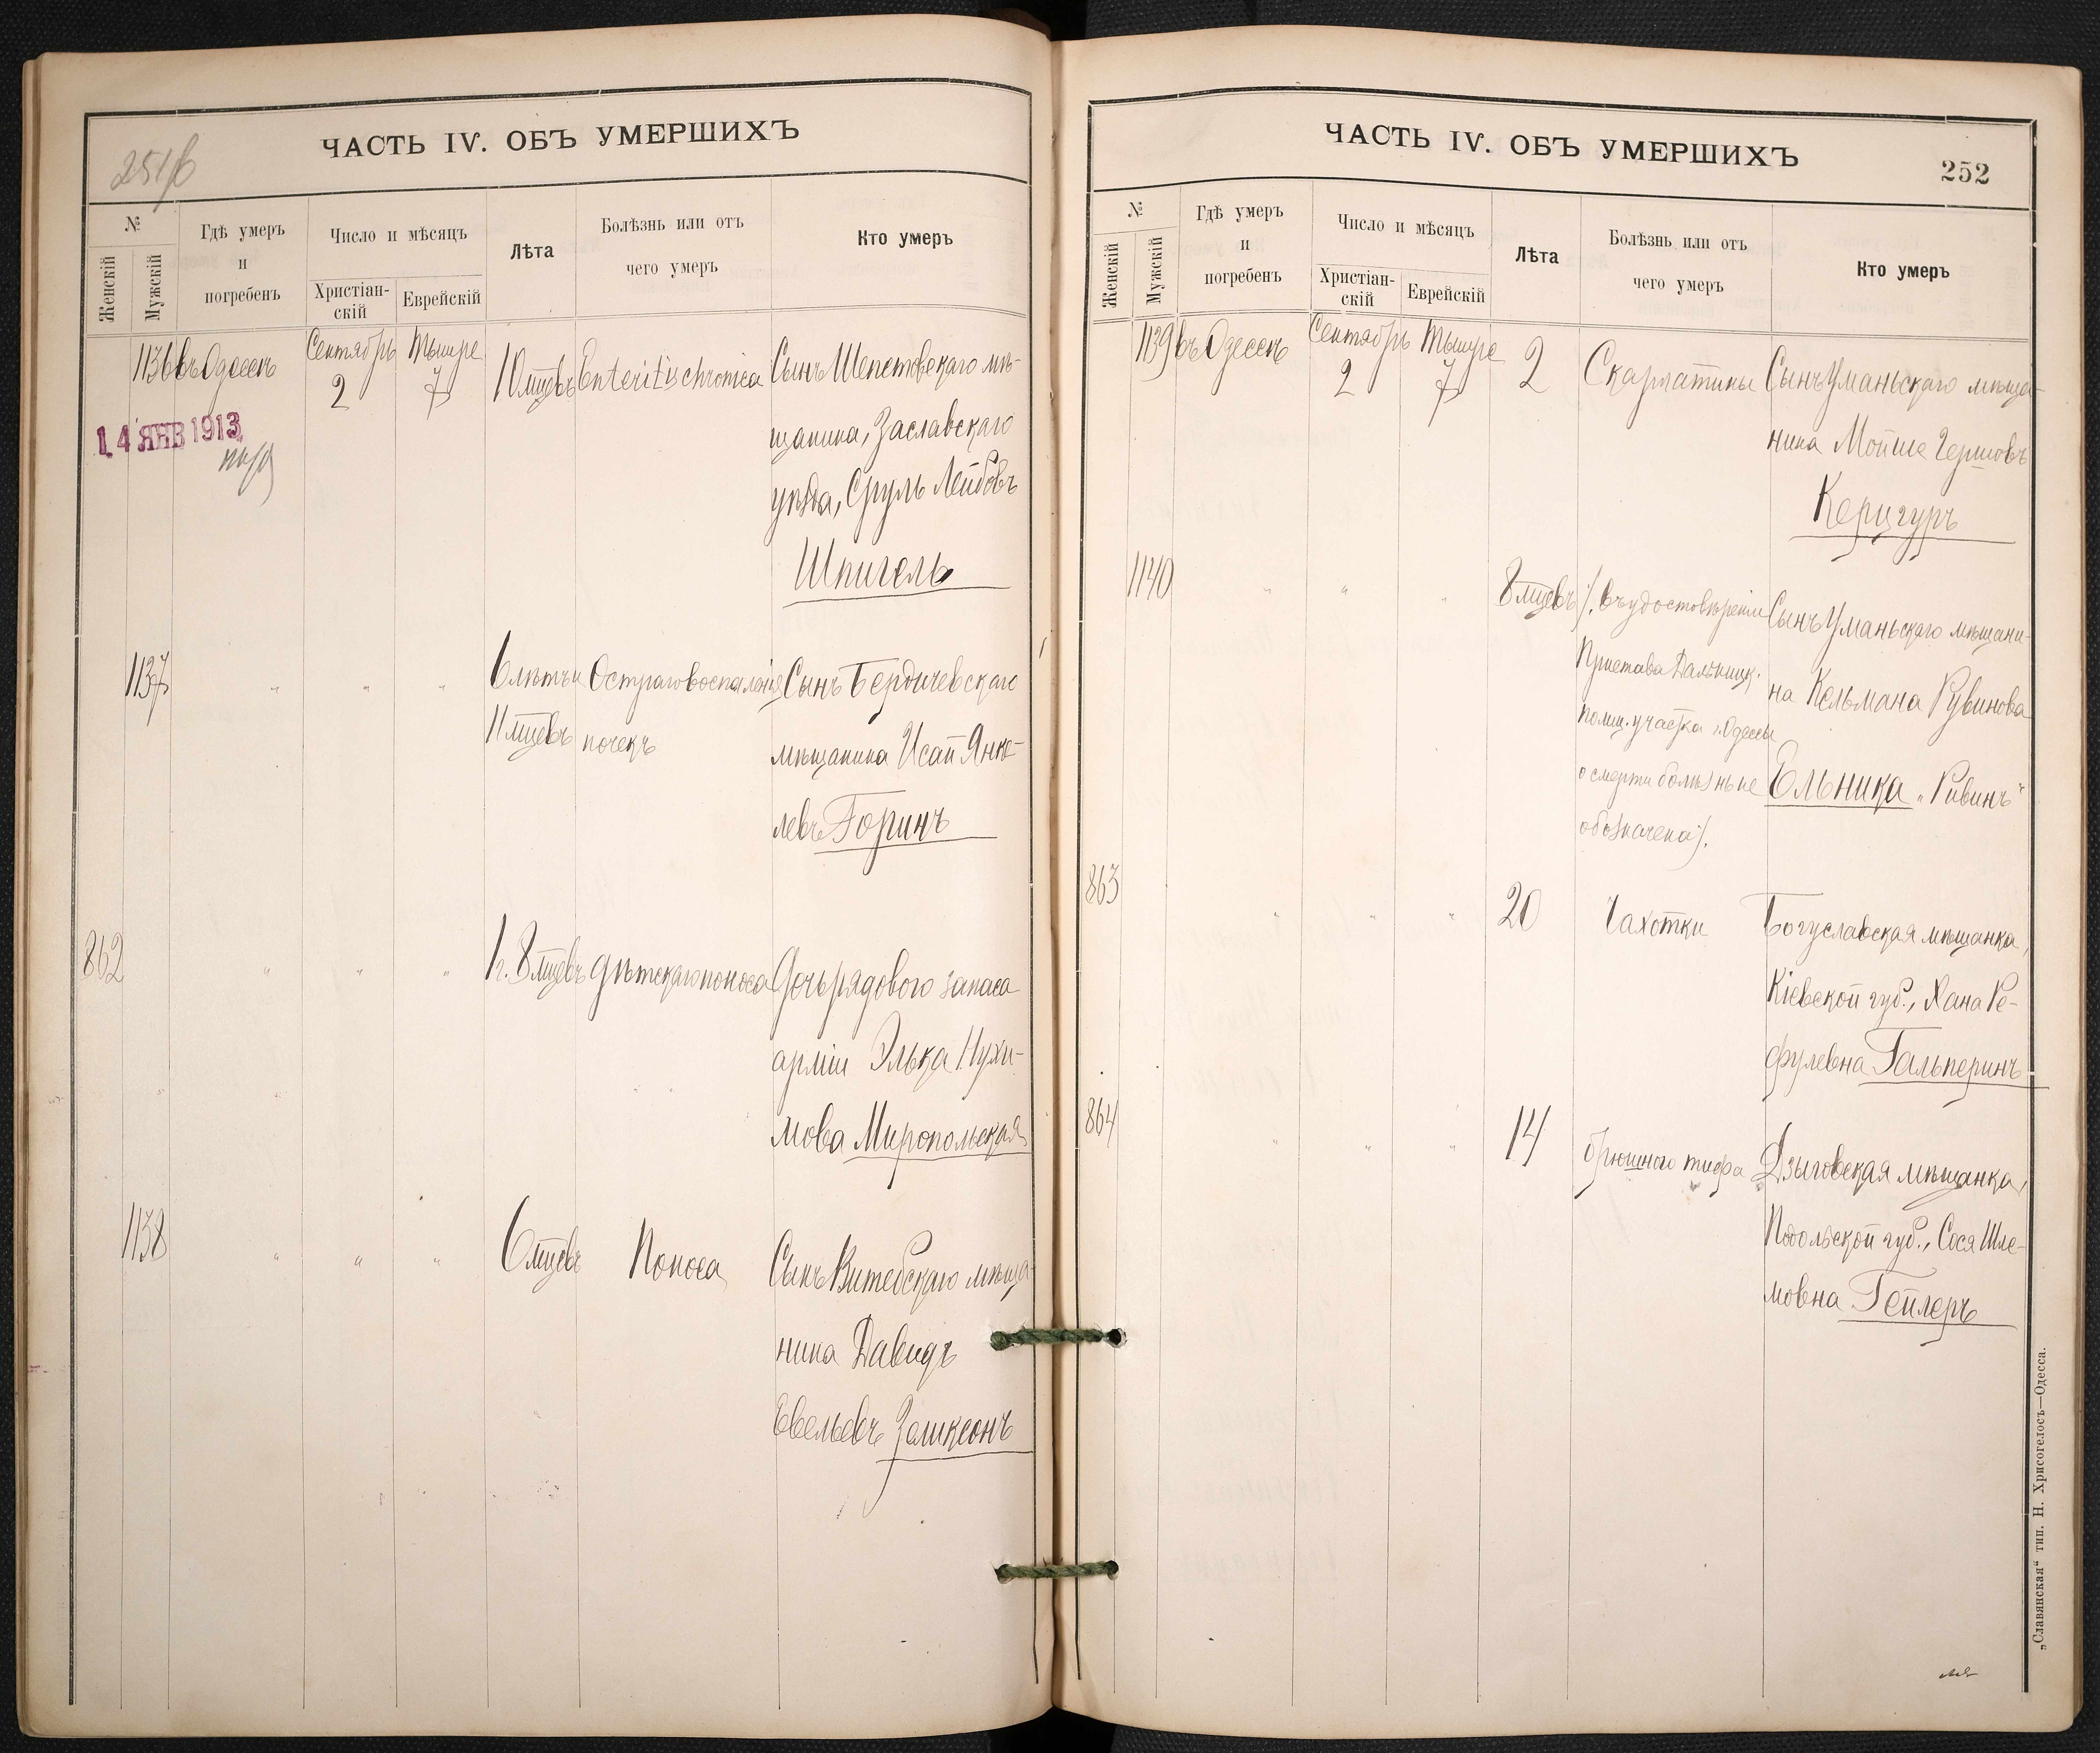 251/б
ЧАСТЬ IV. ОБЪ УМЕРШИХЪ
№
Женскій
Мужскій
Гдѣ умеръ
и
погребенъ
Число и мѣсяцъ
Христіан-
скій
Еврейскій
Лѣта
Болѣзнь или отъ
чего умеръ
Кто умеръ
1136 въ Одессѣ Сентябрь 2 Тышре 7 10 мцевъ Enteritis chronica Сынъ Шепетовскаго мѣ-
щанина, Заславскаго
уѣзда, Сруль Лейбовъ
Шпигель
14 ЯНВ 1913
1137 " " " 6 лѣтъ и Остраго воспаленія Сынъ Бердичевскаго
11 мцевъ почекъ мѣщанина Исай Янке-
левъ Горинъ
862 " " " 1 г. 8 мцевъ дѣтскаго поноса Дочь рядового запаса
арміи Элька Нухи-
мова Миропольская
1138 " " " 6 мцевъ Поноса Сынъ Витебскаго мѣща-
нина Давидъ
Евельевъ Зеликсонъ
ЧАСТЬ IV. ОБЪ УМЕРШИХЪ
252
№
Женскій
Мужскій
Гдѣ умеръ
и
погребенъ
Число и мѣсяцъ
Христіан-
скій
Еврейскій
Лѣта
Болѣзнь или отъ
чего умеръ
Кто умеръ
1139 въ Одессѣ Сентябрь 2 Тышре 7 2 Скарлатины Сынъ Уманьскаго мѣща-
нина Мойше Гершовъ
Керцгуръ
1140 " " " 8 мцевъ /. въ удостовѣреніи Сынъ Уманьскаго мѣщани-
Пристава Дальницк. на Кельмана Рувинова
полиц. участка г. Одессы
о смерти болѣзнь не Ельника "Рувинъ"
обозначена /.
863 " " " 20 Чахотки Богуславская мѣщанка,
Кіевской губ., Хана Ре-
фулевна Гальперинъ
864 " " " 14 брюшного тифа Дзыговская мѣщанка,
Подольской губ., Сося Шле-
мовна Гейлеръ
„Славянская“ тип. Н. Хрисогелосъ—Одесса.